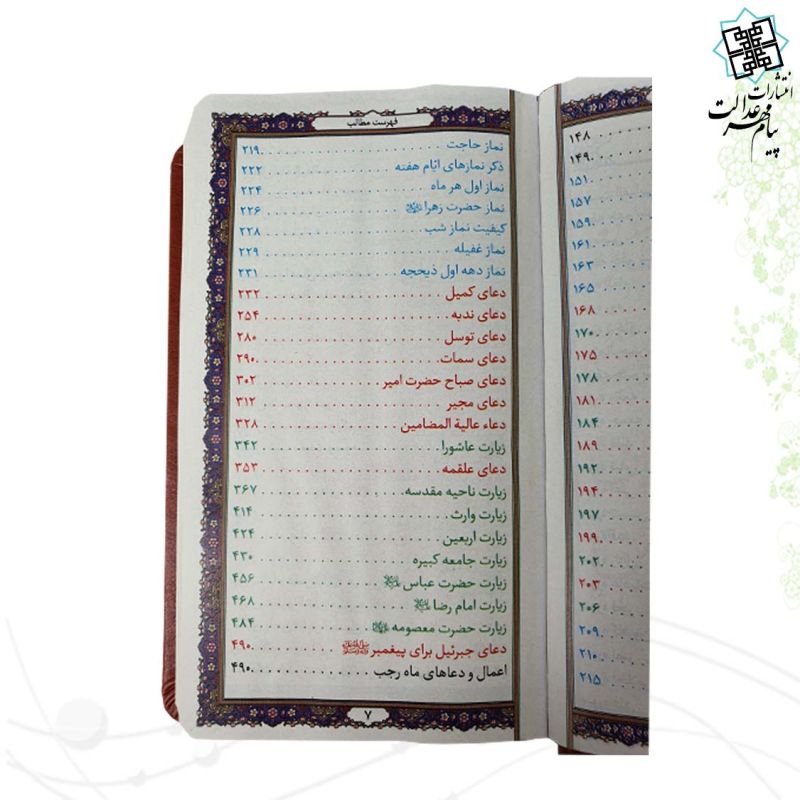 انتشارات
پیام مهر عدالت
۱۴۸
۱۴۹
۱۵۱
۱۵۷
۱۵۹
۱۶۱
۱۶۳
۱۶۵
۱۶۸
۱۷۰
۱۷۵
۱۷۸
۱۸۱
۱۸۴
۱۸۹
۱۹۲
۱۹۴
۱۹۷
۱۹۹
۲۰۲
۲۰۳
۲۰۶
۲۰۹
۲۱۰
۲۱۵
فهرست مطالب
نماز حاجت ۲۱۹
ذکر نمازهای ایّام هفته ۲۲۲
نماز اول هر ماه ۲۲۴
نماز حضرت زهرا ۲۲۶
کیفیت نماز شب ۲۲۸
نماز غفیله ۲۲۹
نماز دهه اول ذیحجه ۲۳۱
دعای کمیل ۲۳۲
دعای ندبه ۲۵۴
دعای توسل ۲۸۰
دعای سمات ۲۹۰
دعای صباح حضرت امیر ۳۰۲
دعای مجیر ۳۱۲
دعاء عالیة المضامین ۳۲۸
زیارت عاشورا ۳۴۲
دعای علقمه ۳۵۳
زیارت ناحیه مقدسه ۳۶۷
زیارت وارث ۴۱۴
زیارت اربعین ۴۲۴
زیارت جامعه کبیره ۴۳۰
زیارت حضرت عباس ۴۵۶
زیارت امام رضا ۴۶۸
زیارت حضرت معصومه ۴۸۴
دعای جبرئیل برای پیغمبر ۴۹۰
اعمال و دعاهای ماه رجب ۴۹۰
۷